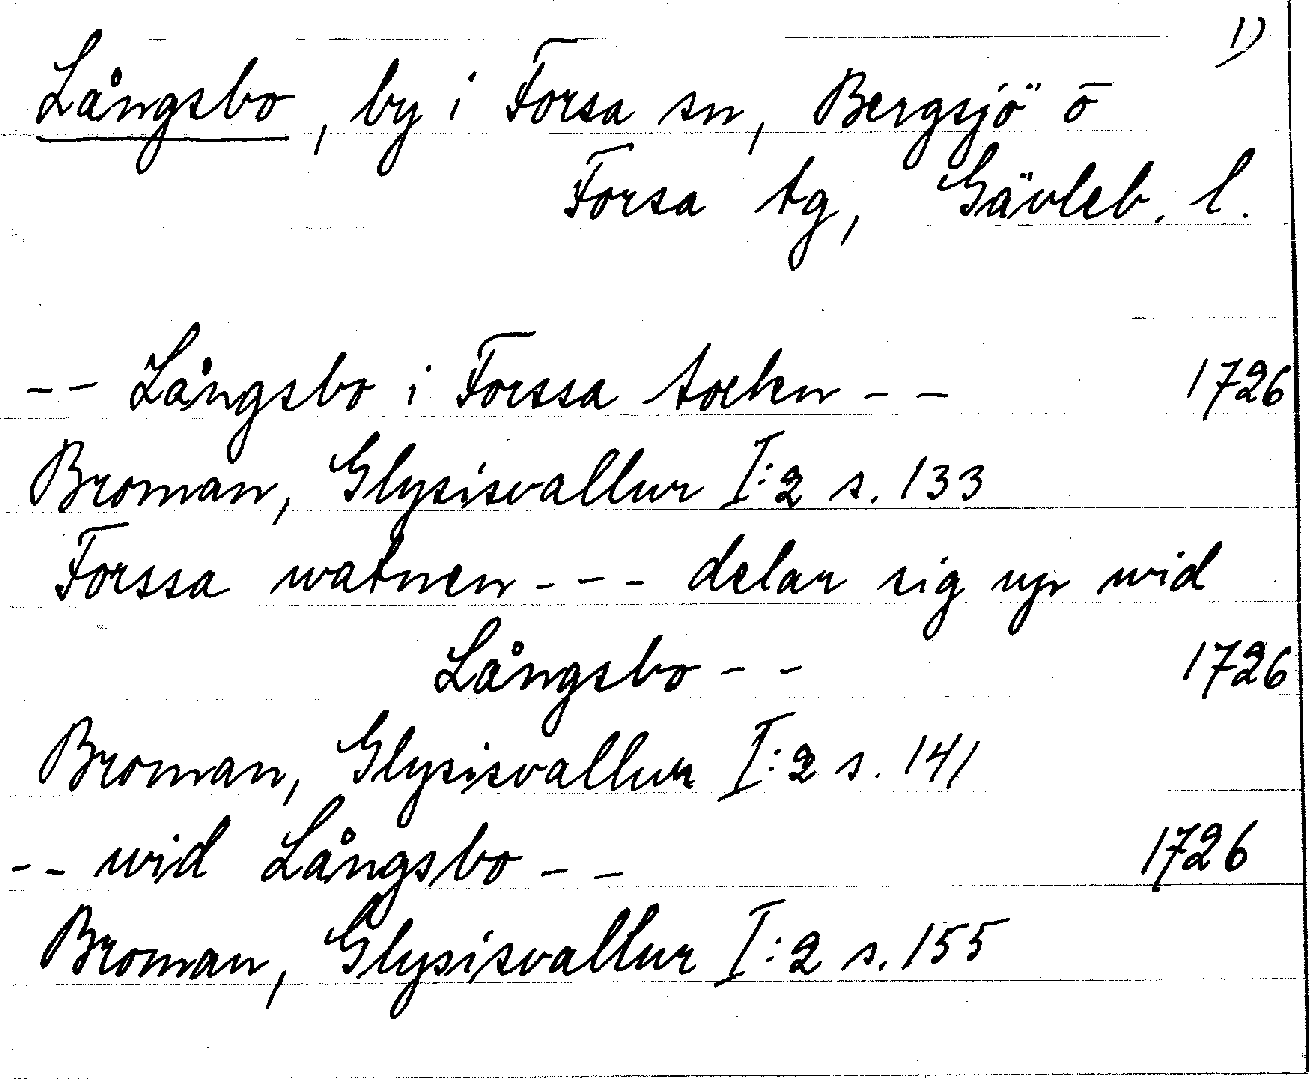 1)
Långsbo, by i Forsa sn, Bergsjö o
Forsa tg, Gävleb. l.
-- Långsbo i Forssa sockn -- 1726
Broman, Glysisvallur I:2 s. 133
Forssa watnen --- delar sig up wid
Långsbo -- 1726
Broman, Glysisvallur I:2 s. 141
-- wid Långsbo -- 1726
Broman, Glysisvallur I:2 s. 155